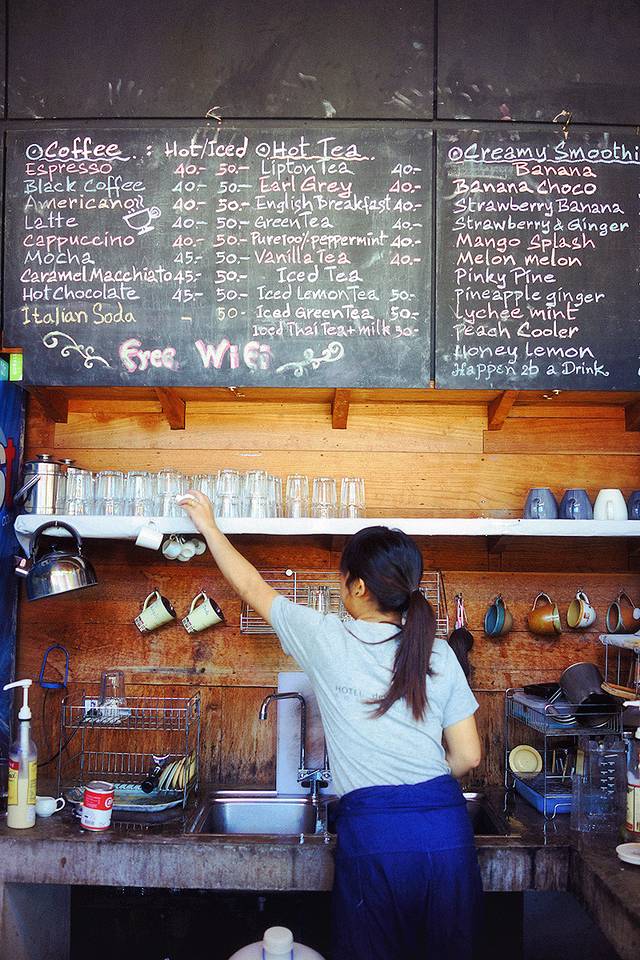 ⊙Coffee : Hot/Iced
Espresso 40.- 50.-
Black Coffee 40.- 50.-
Americano 40.- 50.-
Latte 40.- 50.-
Cappuccino 40.- 50.-
Mocha 45.- 50.-
Caramel Macchiato 45.- 50.-
Hot Chocolate 45.- 50.-
Italian Soda - 50.-
Free WiFi
⊙Hot Tea
Lipton Tea 40.-
Earl Grey 40.-
English Breakfast 40.-
Green Tea 40.-
Pure 100% peppermint 40.-
Vanilla Tea 40.-
Iced Tea
Iced Lemon Tea 50.-
Iced Green Tea 50.-
Iced Thai Tea + milk 50.-
⊙Creamy Smoothi
Banana
Banana Choco
Strawberry Banana
Strawberry & Ginger
Mango Splash
Melon melon
Pinky Pine
Pineapple ginger
Lychee mint
Peach Cooler
Honey Lemon
HOTEL